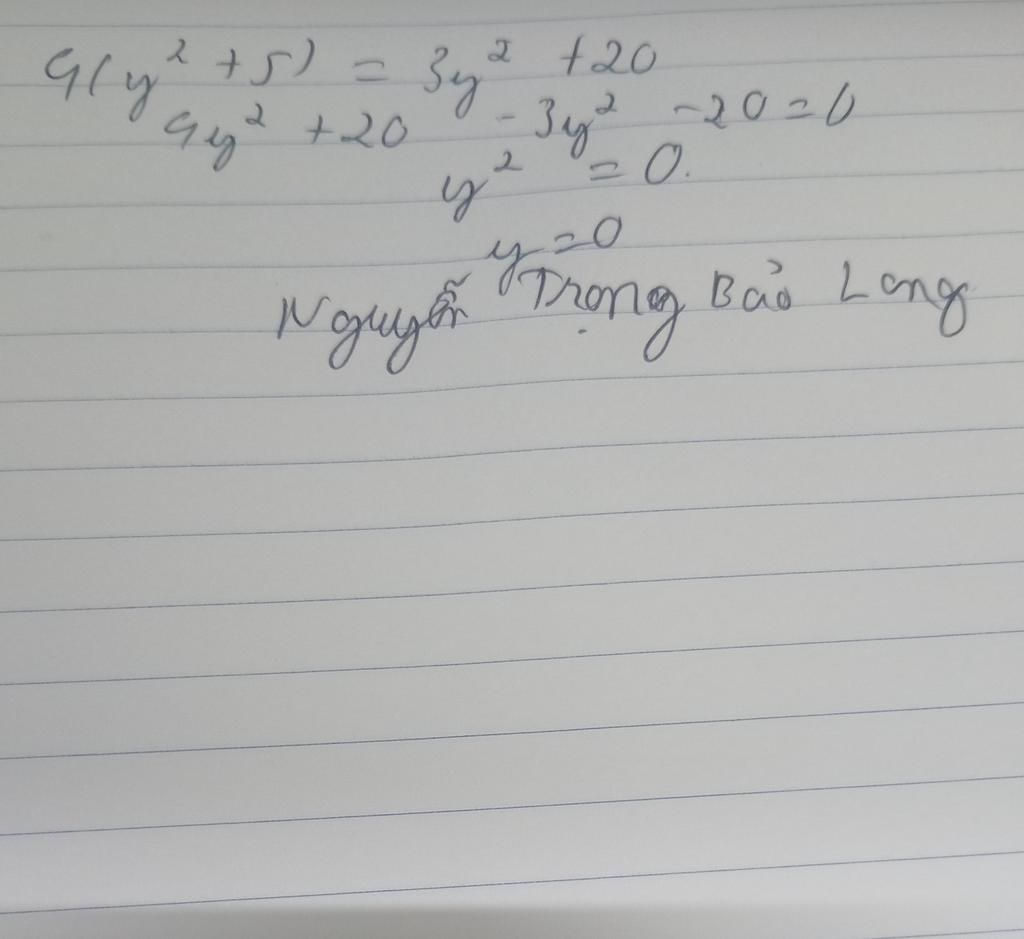 4(y² + 5) = 3y² + 20
4y² + 20 - 3y² - 20 = 0
y² = 0.
y = 0
Nguyễn Trọng Bảo Long